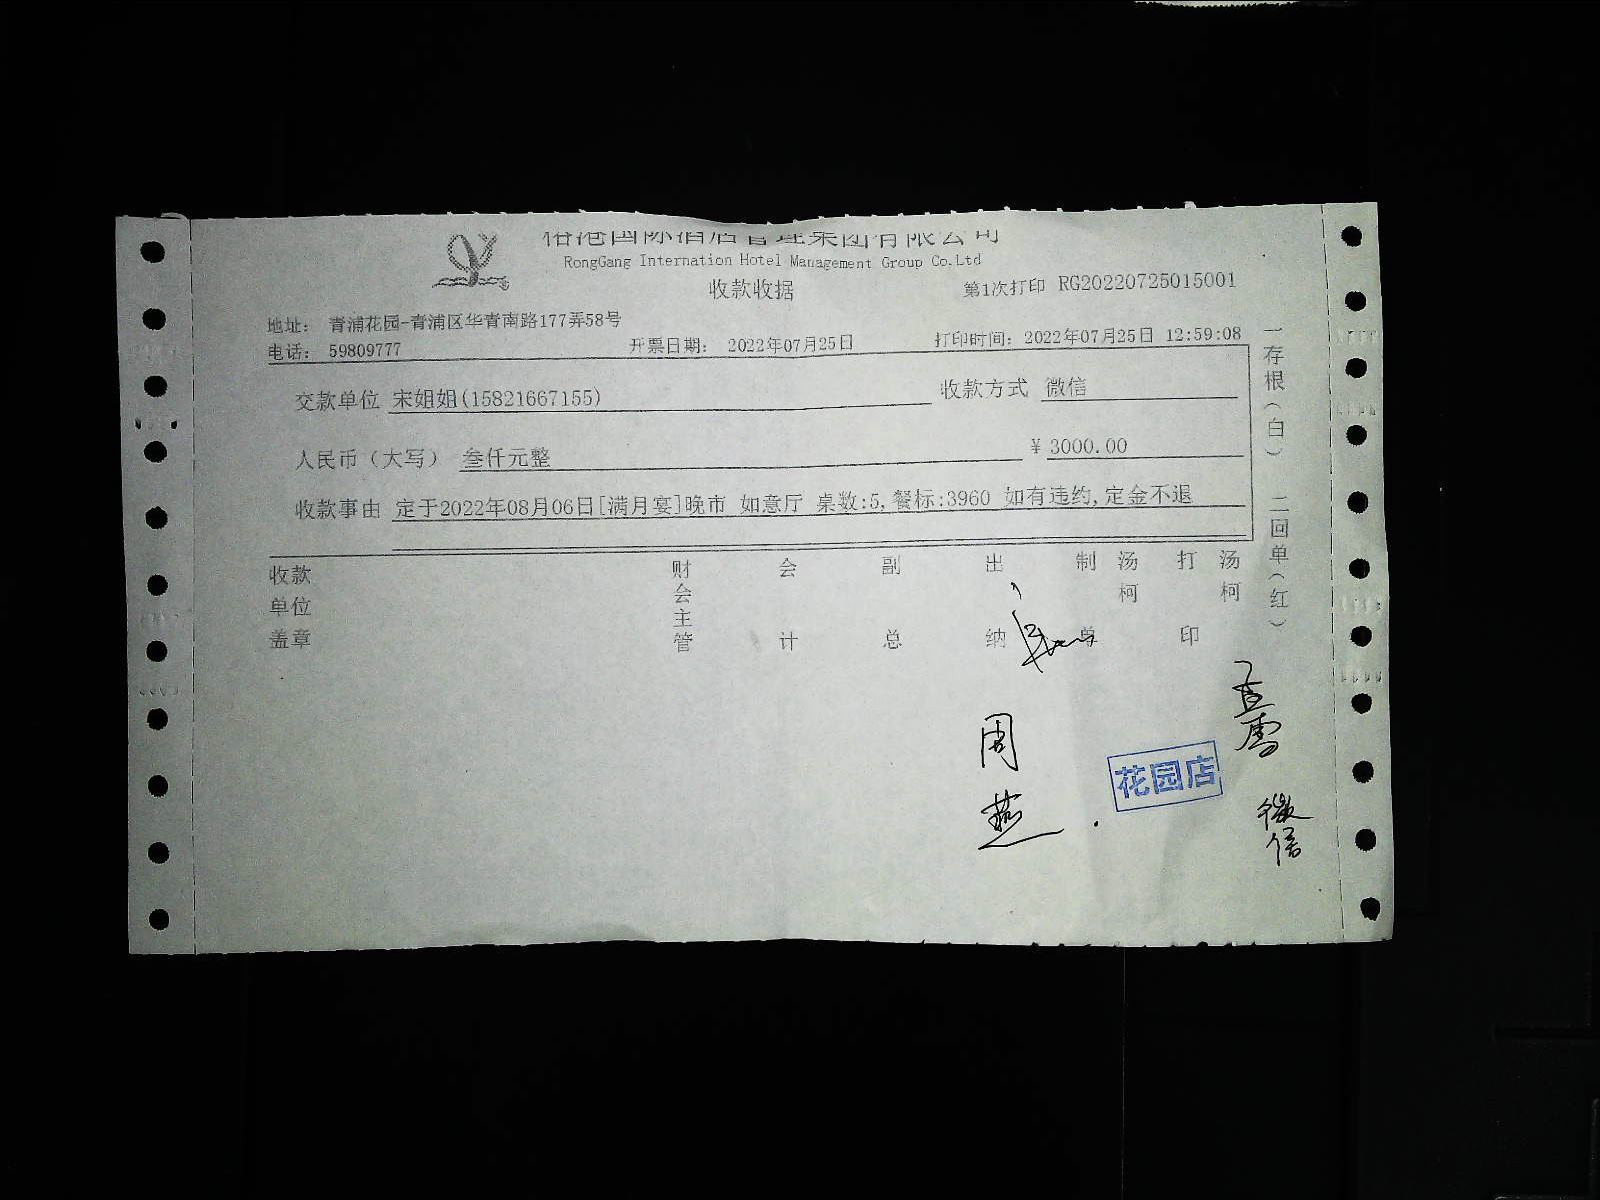 港国际酒店管理集团有限公司
RongGang Internation Hotel Management Group Co.Ltd
收款收据
第1次打印 RG20220725015001
地址: 青浦花园-青浦区华青南路177弄58号
电话: 59809777
开票日期: 2022年07月25日
打印时间: 2022年07月25日 12:59:08
交款单位 宋姐姐(15821667155)
收款方式 微信
人民币（大写） 叁仟元整
¥ 3000.00
收款事由 定于2022年08月06日[满月宴]晚市 如意厅 桌数:5,餐标:3960 如有违约,定金不退
一存根（白） 二回单（红）
收款单位盖章
财会主管
会计
副总
出纳
制单
汤柯
打印
汤柯
周燕
花园店
微信